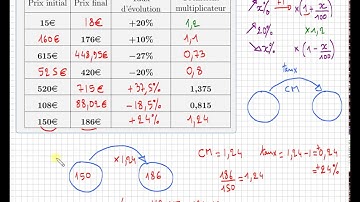 Prix initial Prix final d'évolution multiplicateur
15€ 18€ +20% 1,2
160€ 176€ +10% 1,1
615€ 448,95€ −27% 0,73
525€ 420€ −20% 0,8
520€ 715€ +37,5% 1,375
108€ 88,02€ −18,5% 0,815
150€ 186€ +24% 1,24
x% +1 × (1 + x/100)
20% × 1,2
x% × (1 − x/100)
taux
CM
×1,24
150 186
CM = 1,24 taux = 1,24 − 1 = +0,24
186/150 = 1,24 = +24%